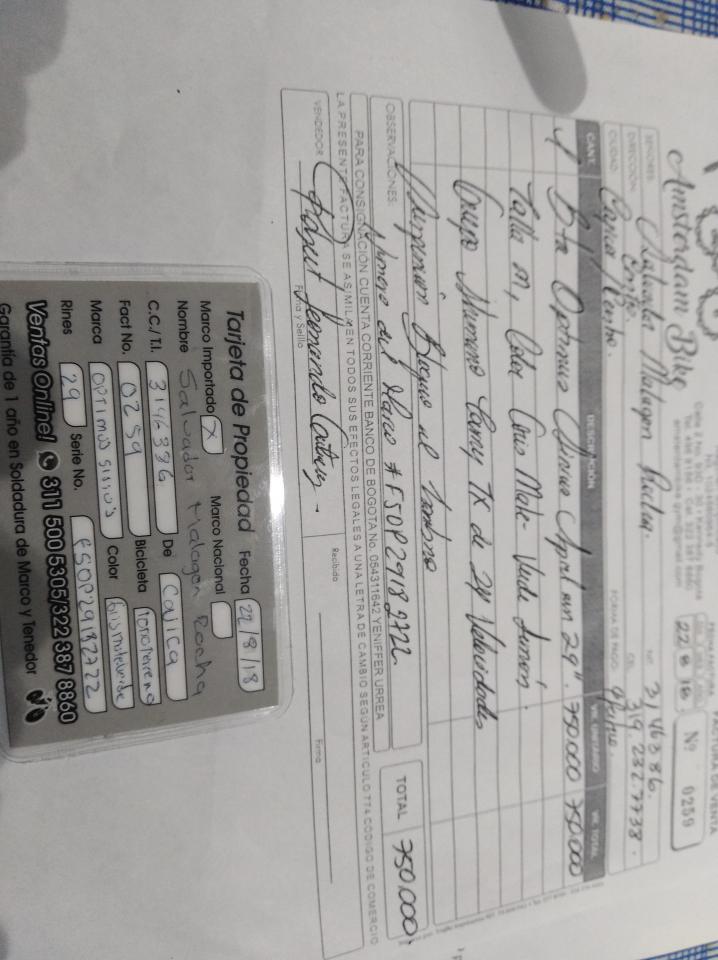 Amsterdam Bike
FACTURA DE VENTA
22 8 18
Nº 0259
SEÑORES: Salvador Malagon Rocha.
NIT. 3146386.
DIRECCIÓN:
CEL. 319 232 7738.
CIUDAD: Cajica
FORMA DE PAGO:
CANT. DESCRIPCIÓN VR. UNITARIO VR. TOTAL
1 Bta Optimus Sirius 29". 750000 750000
Talla M, Color Gris Mate Verde
Grupo Shimano TX de 24 Velocidades
Suspension Bloqueo al hombro
OBSERVACIONES: Numero del Marco #FSOP29182722
TOTAL 750.000
PARA CONSIGNACIÓN CUENTA CORRIENTE BANCO DE BOGOTA No. 054311642 YENIFFER URREA
LA PRESENTE FACTURA SE ASIMILA EN TODOS SUS EFECTOS LEGALES A UNA LETRA DE CAMBIO SEGUN ARTICULO 774 CODIGO DE COMERCIO
VENDEDOR
Firma y Sello
Recibido
Firma
Tarjeta de Propiedad Fecha 22/8/18
Marco Importado X Marco Nacional
Nombre Salvador Malagon Rocha
C.C./T.I. 3146386 De Cajica
Fact No. 0259 Bicicleta todoterreno
Marca OPTIMUS SIRIUS Color
Rines 29 Serie No. FSOP29182722
Ventas Online! 311 500 5305/322 387 8860
Garantía de 1 año en Soldadura de Marco y Tenedor